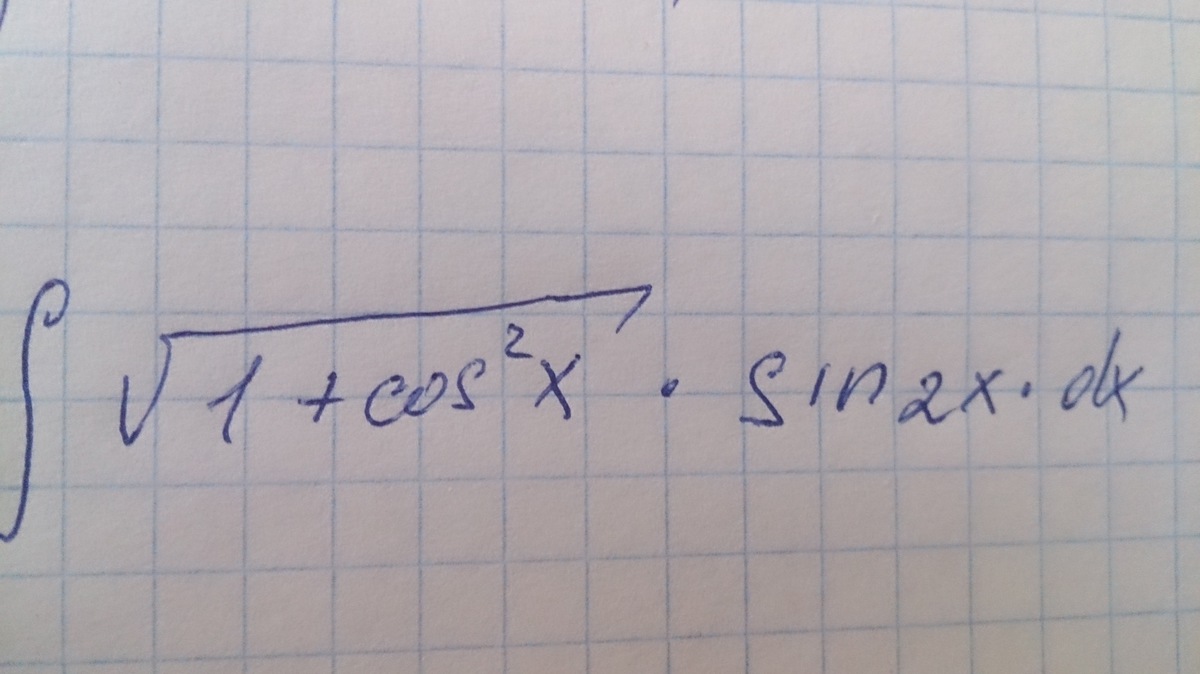 ∫ √(1 + cos²x) · sin2x · dx